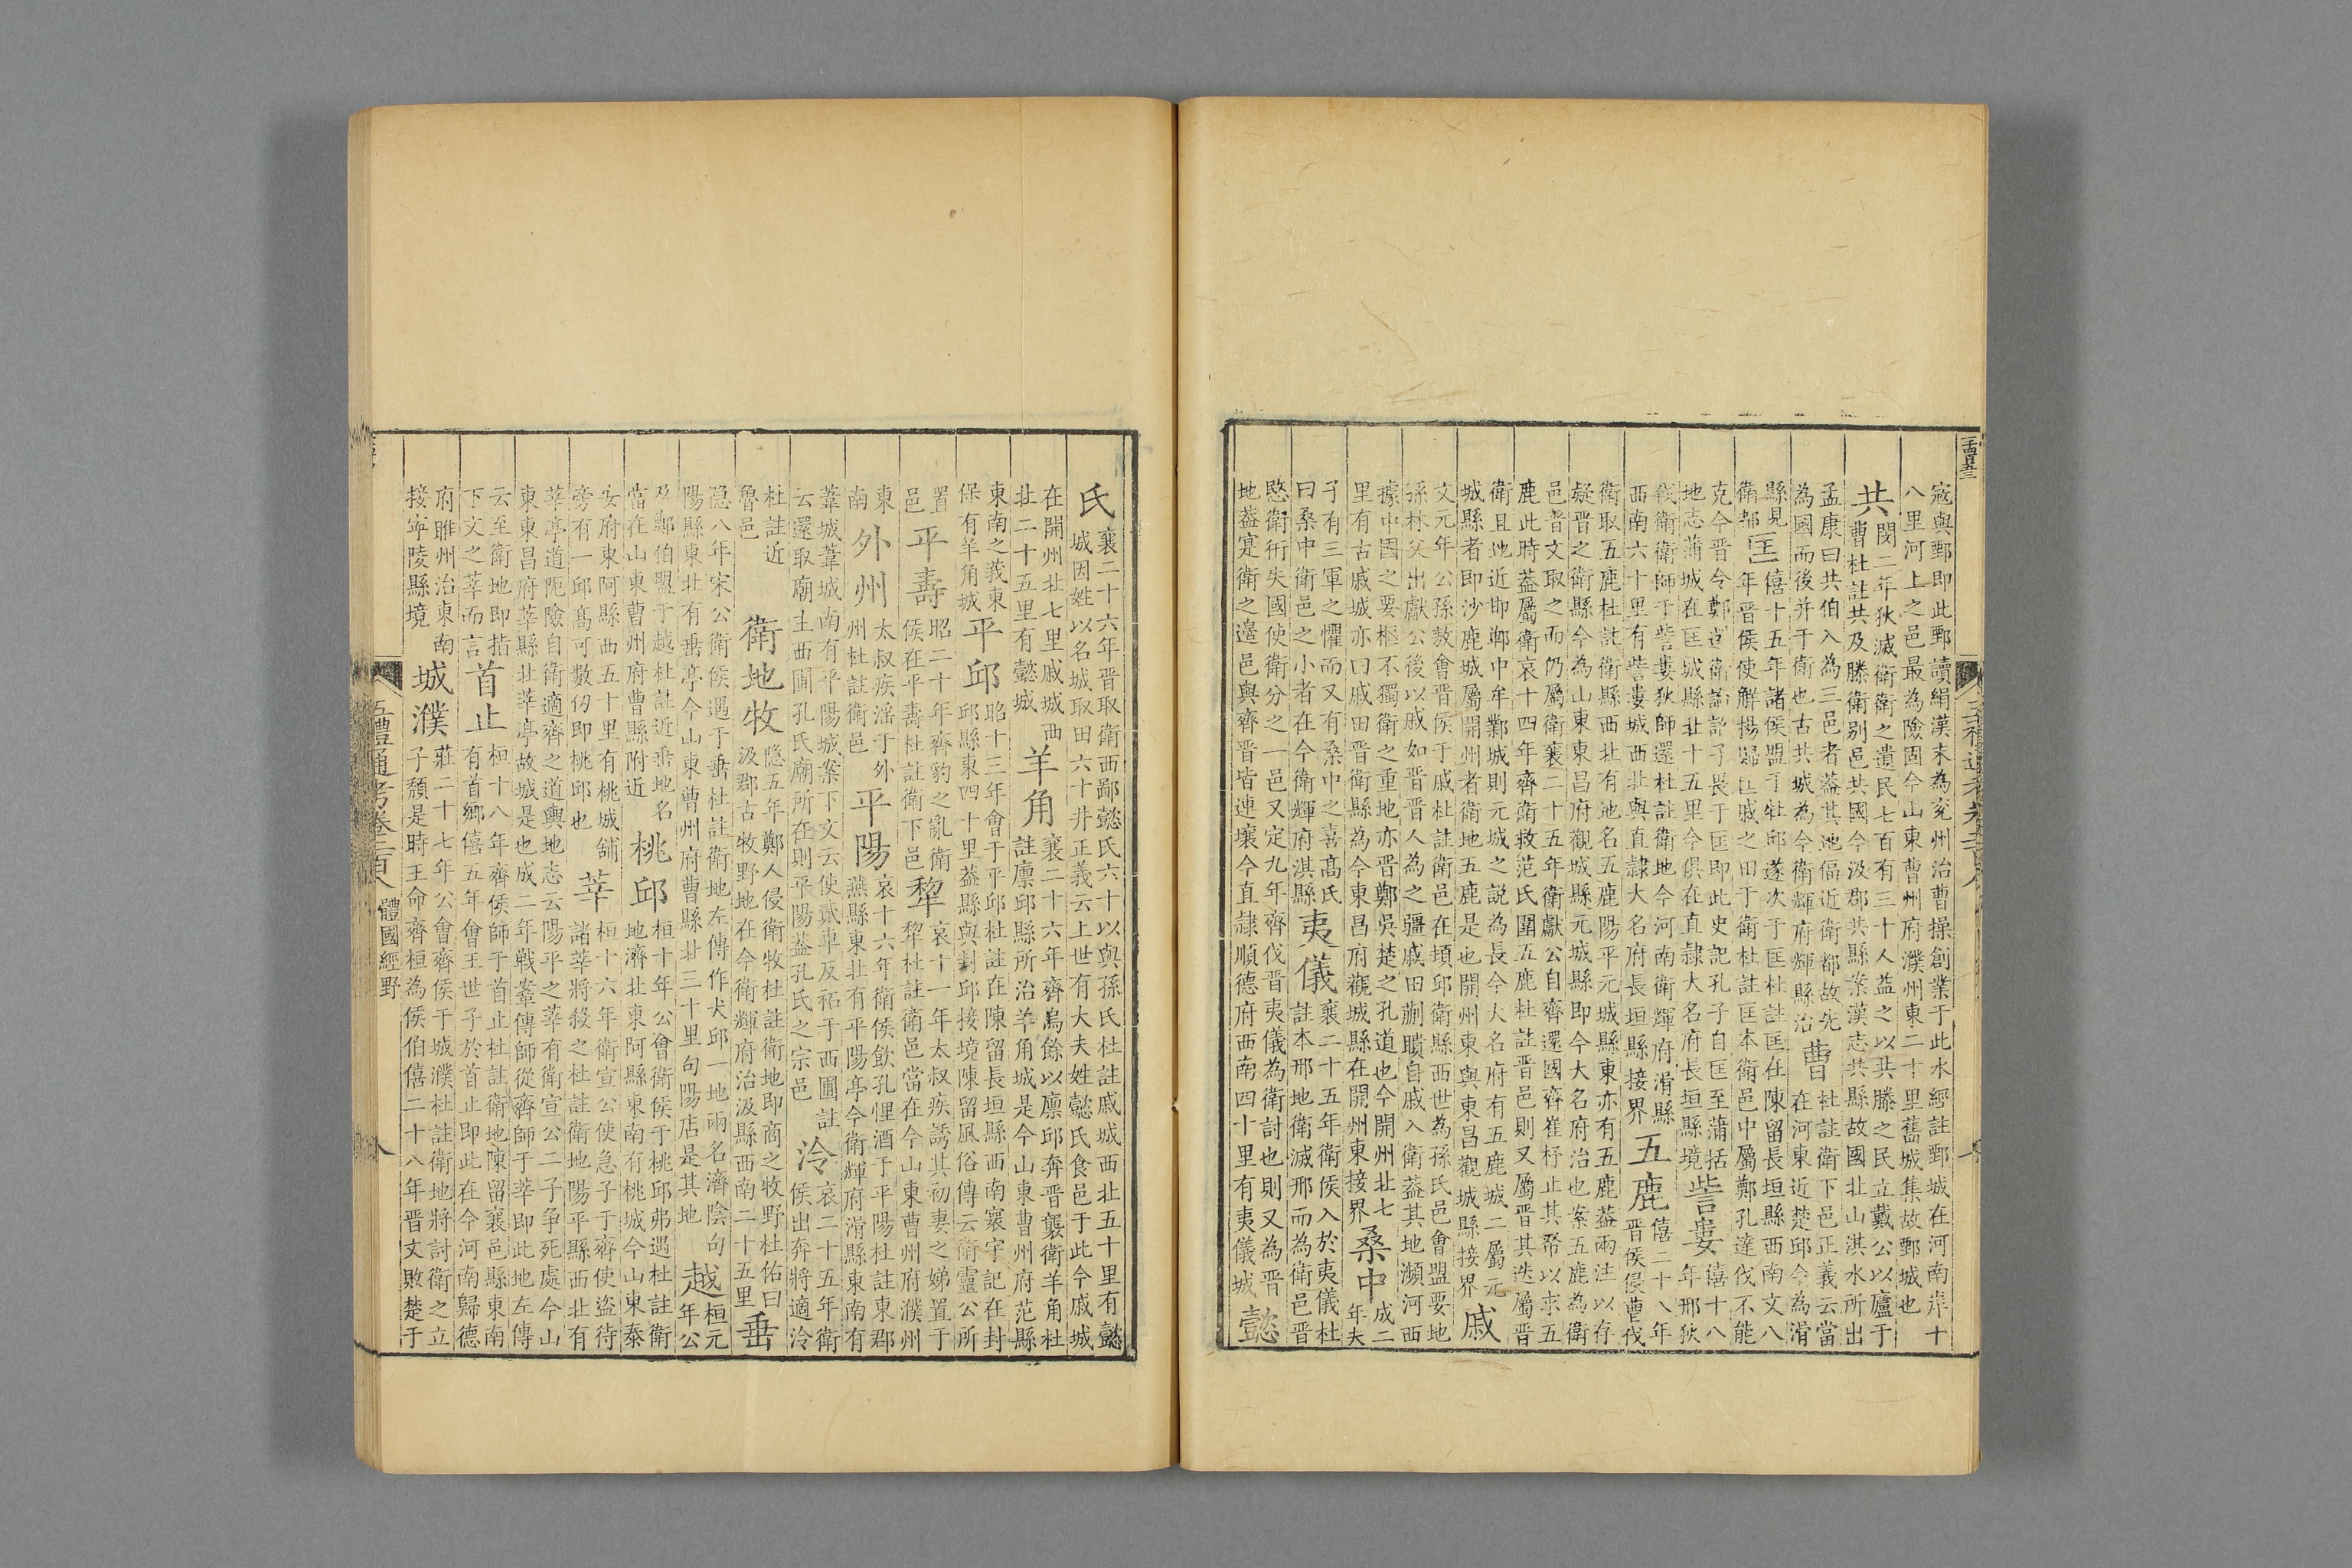 寇與鄄即此鄄讀絹漢末為兗州治曹操創業于此水經註鄄城在河南岸十
八里河上之邑最為險固今山東曹州府濮州東二十里舊城集故鄄城也
共
閔二年狄滅衛衛之遺民七百有三十人益之以共滕之民立戴公以廬于
曹杜註共及滕衛别邑共國今汲郡共縣案漢志共縣故國北山淇水所出
孟康曰共伯入為三邑者葢其地偪近衛都故先
為國而後并于衛也古共城為今衛輝府輝縣治
曹
杜註衛下邑正義云當
在河東近楚邱今為滑
縣見
衛都
匡
僖十五年諸侯盟于牡邱遂次于匡杜註匡在陳留長垣縣西南文八
年晉侯使解揚歸匡戚之田于衛杜註匡本衛邑中屬鄭孔達伐不能
克今晉令鄭還衛論語子畏于匡即此史記孔子自匡至蒲括
地志蒲城在匡城縣北十五里今俱在直隸大名府長垣縣境
訾婁
僖十八
年邢狄
伐衛衛師于訾婁狄師還杜註衛地今河南衛輝府滑縣
西南六十里有訾婁城西北與直隸大名府長垣縣接界
五鹿
僖二十八年
晉侯侵曹伐
衛取五鹿杜註衛縣西北有地名五鹿陽平元城縣東亦有五鹿葢兩注以存
疑晉之衛縣今為山東東昌府觀城縣元城縣即今大名府治也案五鹿為衛
邑晉文取之而仍屬衛襄二十五年衛獻公自齊還國齊崔杼止其帑以求五
鹿此時葢屬衛哀十四年齊衛救范氏圍五鹿杜註晉邑則又屬晉其迭屬晉
衛且地近邯鄲中牟鄴城則元城之説為長今大名府有五鹿城二屬元
城縣者即沙鹿城屬開州者衛地五鹿是也開州東與東昌觀城縣接界
戚
文元年公孫敖會晉侯于戚杜註衛邑在頃邱衛縣西世為孫氏邑會盟要地
孫林父出獻公後以戚如晉晉人為之疆戚田蒯聵自戚入衛葢其地瀕河西
據中國之要樞不獨衛之重地亦晉鄭吳楚之孔道也今開州北七
里有古戚城亦曰戚田晉衛縣為今東昌府觀城縣在開州東接界
桑中
成二
年夫
子有三軍之懼而又有桑中之喜髙氏
曰桑中衛邑之小者在今衛輝府淇縣
夷儀
襄二十五年衛侯入於夷儀杜
註本邢地衛滅邢而為衛邑晉
愍衛衎失國使衛分之一邑又定九年齊伐晉夷儀為衛討也則又為晉
地葢寔衛之邊邑與齊晉皆連壤今直隸順德府西南四十里有夷儀城
懿
氏
襄二十六年晉取衛西鄙懿氏六十以與孫氏杜註戚城西北五十里有懿
城因姓以名城取田六十井正義云上世有大夫姓懿氏食邑于此今戚城
在開州北七里戚城西
北二十五里有懿城
羊角
襄二十六年齊烏餘以廪邱奔晉襲衛羊角杜
註廪邱縣所治羊角城是今山東曹州府范縣
東南之義東
保有羊角城
平邱
昭十三年會于平邱杜註在陳留長垣縣西南寰宇記在封
邱縣東四十里葢縣與封邱接境陳留風俗傳云衛靈公所
置
邑
平壽
昭二十年齊豹之亂衛
侯在平壽杜註衛下邑
犂
哀十一年太叔疾誘其初妻之娣置于
犂杜註衛邑當在今山東曹州府濮州
東
南
外州
太叔疾淫于外
州杜註衛邑
平陽
哀十六年衛侯飲孔悝酒于平陽杜註東郡
燕縣東北有平陽亭今衛輝府滑縣東南有
葦城葦城南有平陽城案下文云使貳車反祏于西圃註
云還取廟主西圃孔氏廟所在則平陽葢孔氏之宗邑
泠
哀二十五年衛
侯出奔將適泠
杜註近
魯邑
衛地牧
隐五年鄭人侵衛牧杜註衛地即商之牧野杜佑曰
汲郡古牧野地在今衛輝府治汲縣西南二十五里
垂
隐八年宋公衛侯遇于垂杜註衛地左傳作犬邱一地兩名濟陰句
陽縣東北有垂亭今山東曹州府曹縣北三十里句陽店是其地
越
桓元
年公
及鄭伯盟于越杜註近垂地名
當在山東曹州府曹縣附近
桃邱
桓十年公會衛侯于桃邱弗遇杜註衛
地濟北東阿縣東南有桃城今山東泰
安府東阿縣西五十里有桃城舖
旁有一邱髙可數仞即桃邱也
莘
桓十六年衛宣公使急子于齊使盗待
諸莘將殺之杜註衛地陽平縣西北有
莘亭道阨險自衛適齊之道輿地志云陽平之莘有衛宣公二子争死處今山
東東昌府莘縣北莘亭故城是也成二年戰鞌傳師從齊師于莘即此地左傳
云至衛地即指
下文之莘而言
首止
桓十八年齊侯師于首止杜註衛地陳留襄邑縣東南
有首鄉僖五年會王世子於首止即此在今河南歸德
府睢州治東南
接寜陵縣境
城濮
莊二十七年公會齊侯于城濮杜註衛地將討衛之立
子頽是時王命齊桓為侯伯僖二十八年晉文敗楚于
五禮通考卷二百八
體國經野
八